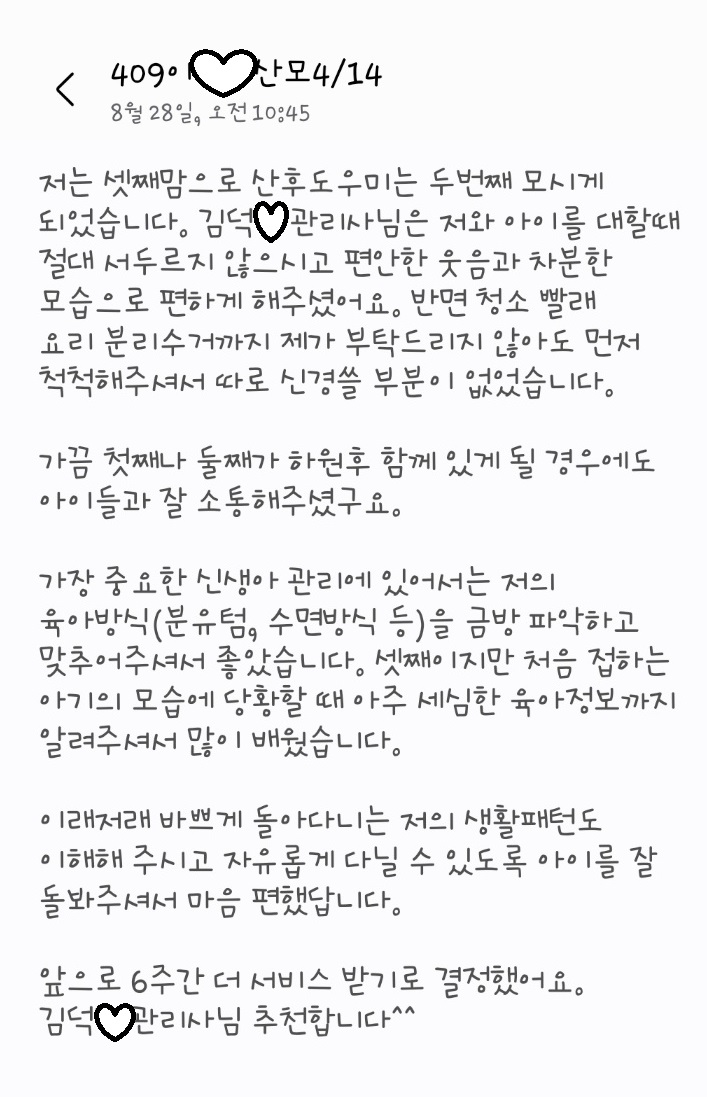 409이 산모4/14
8월 28일, 오전 10:45
저는 셋째맘으로 산후도우미는 두번째 모시게
되었습니다. 김덕 관리사님은 저와 아이를 대할때
절대 서두르지 않으시고 편안한 웃음과 차분한
모습으로 편하게 해주셨어요. 반면 청소 빨래
요리 분리수거까지 제가 부탁드리지 않아도 먼저
척척해주셔서 따로 신경쓸 부분이 없었습니다.
가끔 첫째나 둘째가 하원후 함께 있게 될 경우에도
아이들과 잘 소통해주셨구요.
가장 중요한 신생아 관리에 있어서는 저의
육아방식(분유텀, 수면방식 등)을 금방 파악하고
맞추어주셔서 좋았습니다. 셋째이지만 처음 접하는
아기의 모습에 당황할 때 아주 세심한 육아정보까지
알려주셔서 많이 배웠습니다.
이래저래 바쁘게 돌아다니는 저의 생활패턴도
이해해 주시고 자유롭게 다닐 수 있도록 아이를 잘
돌봐주셔서 마음 편했답니다.
앞으로 6주간 더 서비스 받기로 결정했어요.
김덕 관리사님 추천합니다^^